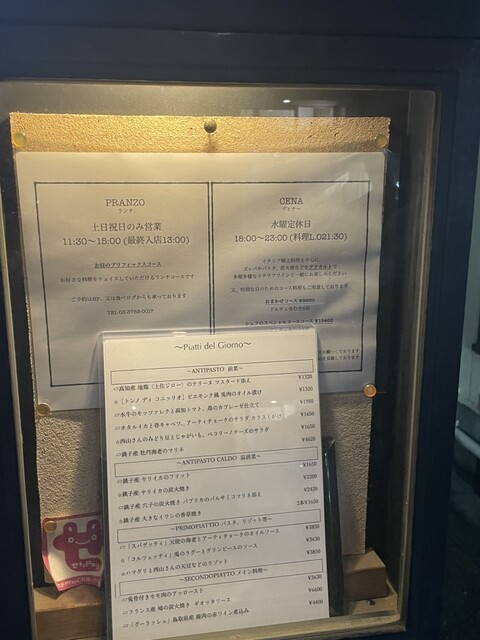 PRANZO
ランチ
土日祝日のみ営業
11:30〜15:00 (最終入店13:00)
お昼のプリフィックスコース
お好きな料理をチョイスしていただけるランチコースです
ご予約はHP、又は食べログからも承っております
CENA
ディナー
水曜定休日
18:00〜23:00 (料理L.O21:30)
イタリア郷土料理を中心に
又、特別な日のためのコース料理もご用意しております
おまかせコース
〜Piatti del Giorno〜
〜ANTIPASTO 前菜〜
高知産 地鶏 (土佐ジロー) のテリーヌ マスタード添え ¥1320
【トンノ ディ コニッリオ】ピエモンテ風 兎肉のオイル漬け ¥1320
水牛のモッツァレラと高知トマト、苺のカプレーゼ仕立て ¥1980
ホタルイカと春キャベツ、アーティチョークのサラダ カラスミがけ ¥1650
西山さんのみどり豆とじゃがいも、ペコリーノチーズのサラダ ¥1650
銚子産 牡丹海老のマリネ
〜ANTIPASTO CALDO 温前菜〜
銚子産 ヤリイカのフリット ¥1650
銚子産 ヤリイカの炭火焼き ¥2200
銚子産 穴子の炭火焼き パプリカのバルサミコマリネ添え ¥2420
銚子産 大きなイワシの香草焼き 2本¥1650
〜PRIMOPIATTO パスタ、リゾット等〜
「スパゲッティ」天使の海老とアーティチョークのオイルソース
「コルツェッティ」兎のラグーとグリンピースのソース
ハマグリと西山さんの大豆などのリゾット
〜SECONDOPIATTO メイン料理〜
兎骨付きモモ肉のアッロースト
フランス産 鳩の炭火焼き
「グーラッシュ」鳥取県産 鹿肉の赤ワイン煮込み ¥4400